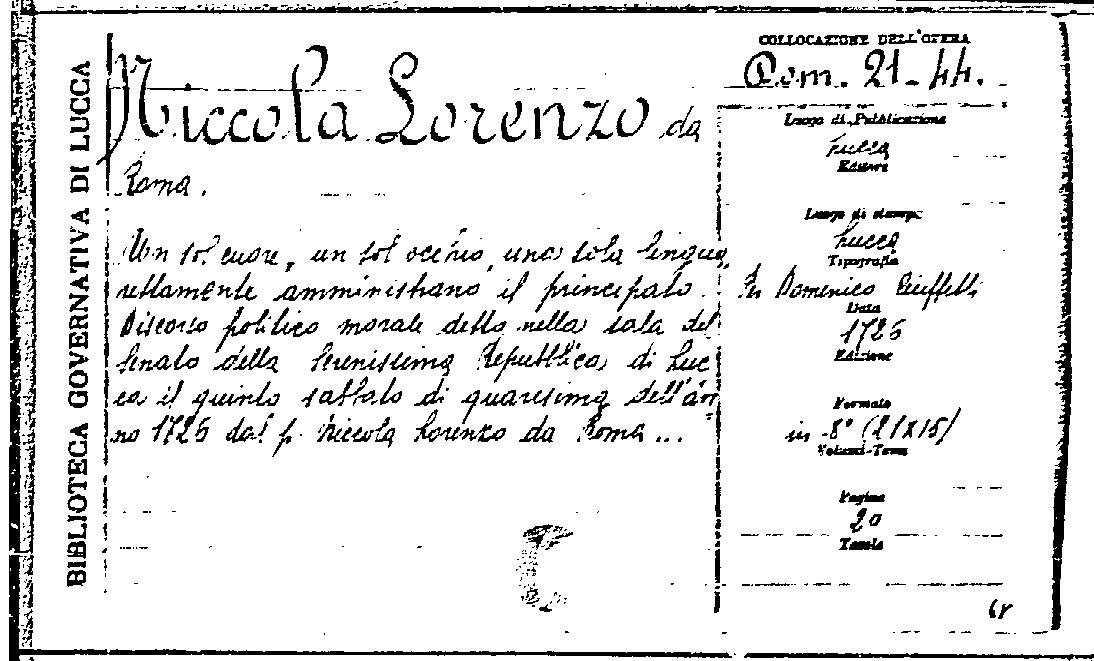 BIBLIOTECA GOVERNATIVA DI LUCCA
Niccola Lorenzo da
Roma.
Un sol cuore, un sol occhio, una sola lingua
rettamente amministrano il principato.
Discorso politico morale detto nella sala del
Senato della Serenissima Repubblica di Luc
ca il quinto sabbato di quaresima dell'an=
no 1725 dal p. Niccola Lorenzo da Roma...
COLLOCAZIONE DELL'OPERA
Pom. 21-44.
Luogo di Pubblicazione
Lucca
Editore
Luogo di stampa
Lucca
Tipografia
Per Domenico Ciuffetti
Data
1725
Edizione
Formato
in 8° (21X15)
Volumi-Tomi
Pagine
20
Tavole